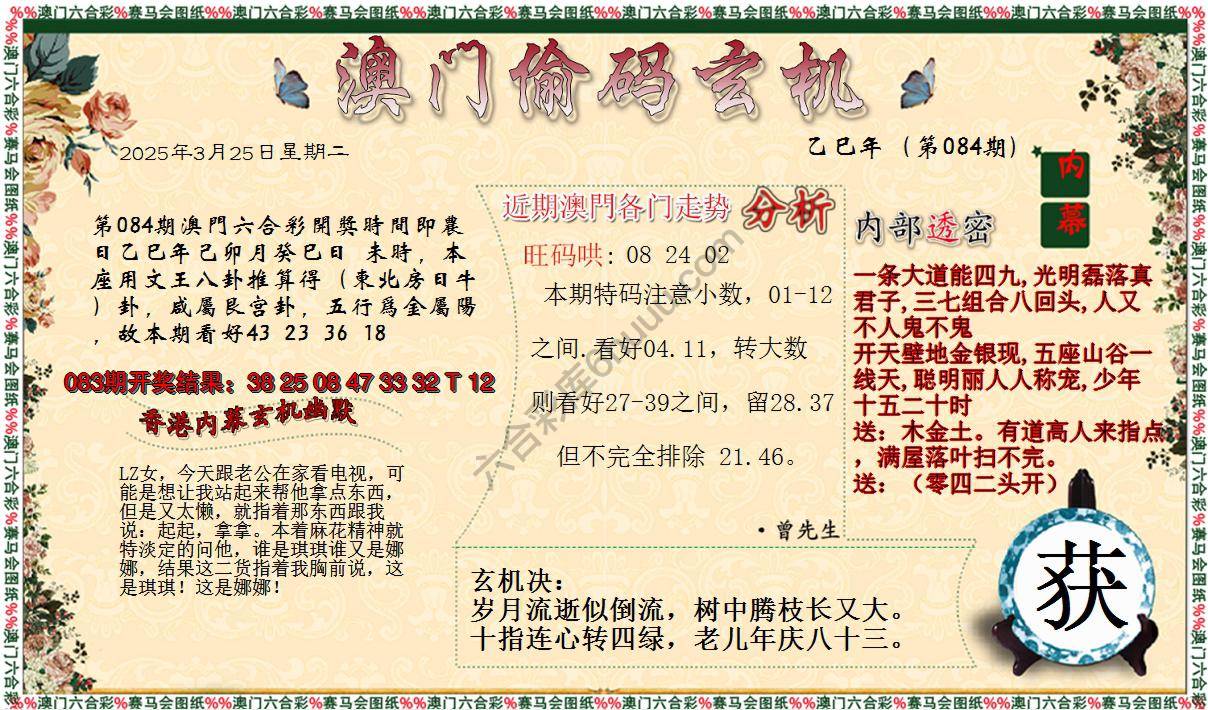 %%澳门六合彩%赛马会图纸%%澳门六合彩%赛马会图纸%%澳门六合彩%赛马会图纸%%澳门六合彩%赛马会图纸%%澳门六合彩%赛马会图纸%%澳门六合彩%赛马会图纸%%澳门六合彩%赛马会图纸%%
澳门偷码玄机
2025年3月25日星期二
乙巳年（第084期）
内
幕
第084期澳門六合彩開獎時間即農
日乙巳年己卯月癸巳日 未時，本
座用文王八卦推算得（東北房日牛
）卦，咸屬艮宫卦，五行爲金屬陽
，故本期看好43 23 36 18
083期开奖结果：38 25 08 47 33 32 T 12
香港内幕玄机幽默
LZ女，今天跟老公在家看电视，可
能是想让我站起来帮他拿点东西，
但是又太懒，就指着那东西跟我
说：起起，拿拿。本着麻花精神就
特淡定的问他，谁是琪琪谁又是娜
娜，结果这二货指着我胸前说，这
是琪琪！这是娜娜！
近期澳門各门走勢 分析
旺码哄: 08 24 02
本期特码注意小数，01-12
之间.看好04.11，转大数
则看好27-39之间，留28.37
但不完全排除 21.46。
·曾先生
内部透密
一条大道能四九,光明磊落真
君子,三七组合八回头,人又
不人鬼不鬼
开天壁地金银现,五座山谷一
线天,聪明丽人人称宠,少年
十五二十时
送：木金土。有道高人来指点
，满屋落叶扫不完。
送：（零四二头开）
玄机决：
岁月流逝似倒流，树中腾枝长又大。
十指连心转四绿，老儿年庆八十三。
获
%%澳门六合彩%赛马会图纸%%澳门六合彩%赛马会图纸%%澳门六合彩%赛马会图纸%%澳门六合彩%赛马会图纸%%澳门六合彩%赛马会图纸%%澳门六合彩%赛马会图纸%%澳门六合彩%赛马会图纸%%